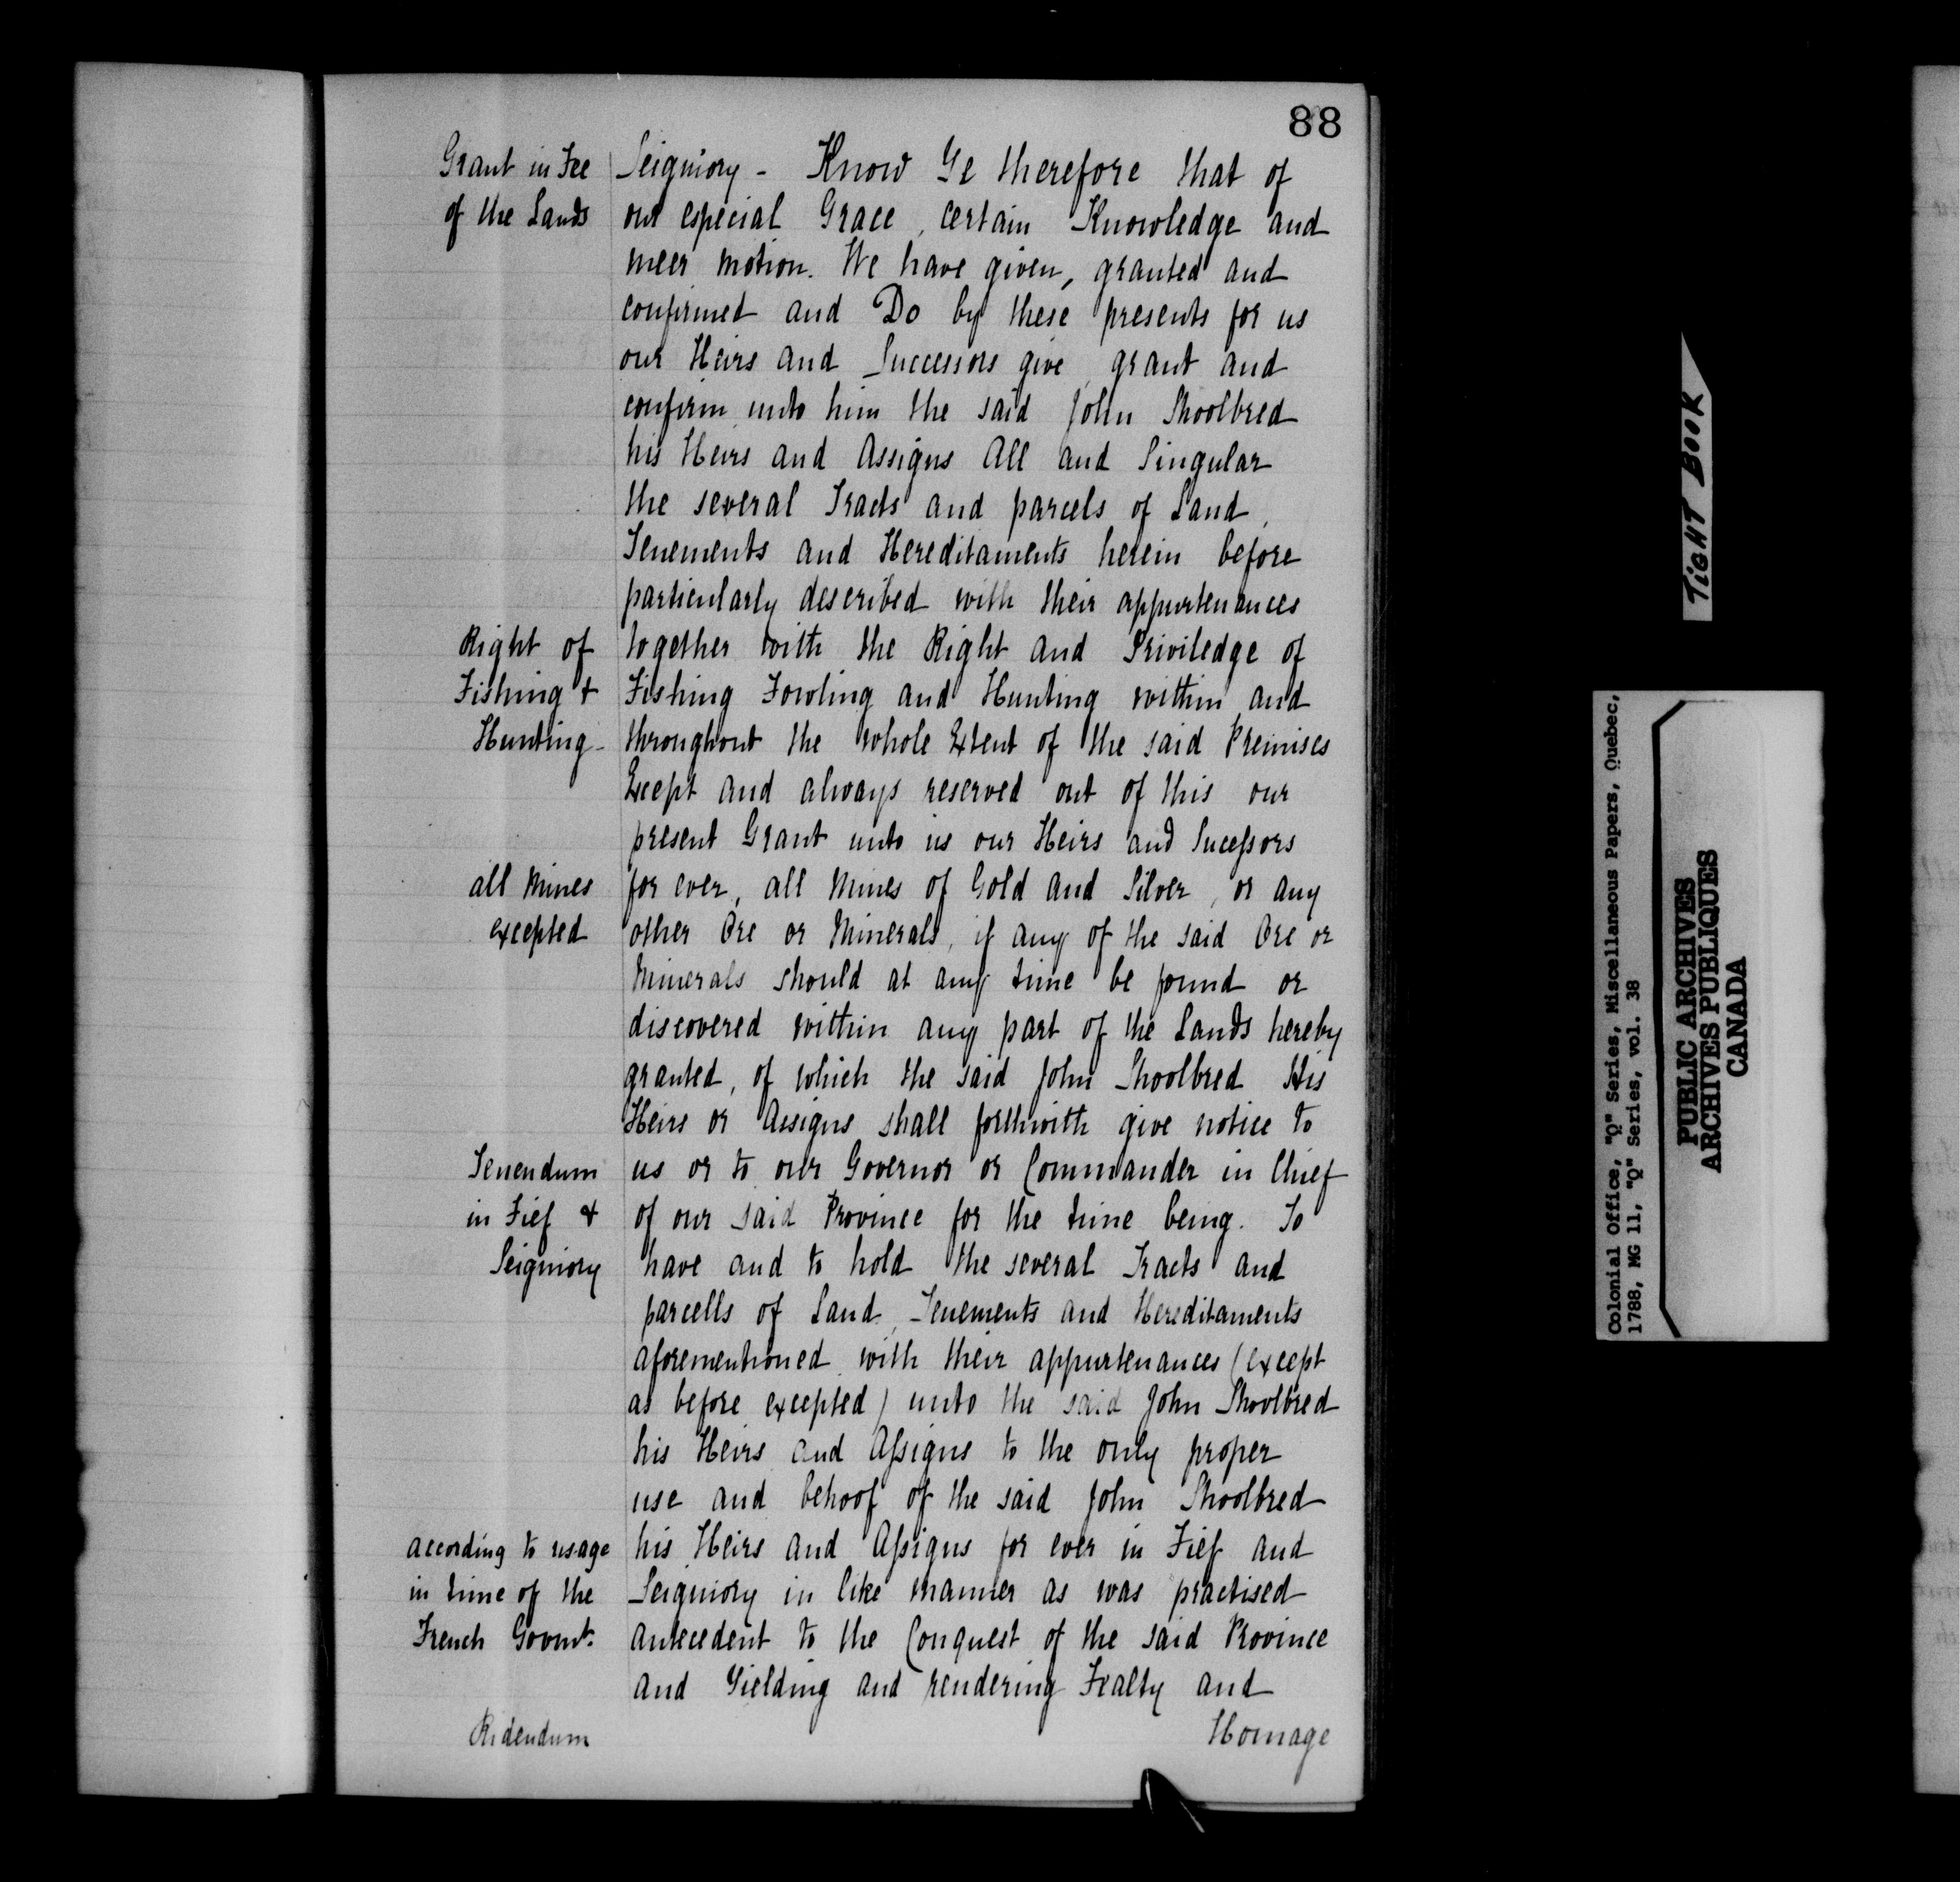 88
Grant in Fee
of the Lands
Seigniory - Know Ye therefore that of
our especial Grace, certain Knowledge and
meer motion. We have given, granted and
confirmed and Do by these presents for us
our Heirs and Successors give, grant and
confirm unto him the said John Shoolbred
his Heirs and Assigns All and Singular
the several Tracts and parcels of Land,
Tenements and Hereditaments herein before
particularly described with their appurtenances
Right of
Fishing &
Hunting-
together with the Right and Priviledge of
Fishing Fowling and Hunting within and
throughout the whole Extent of the said Premises
Except and always reserved out of this our
present Grant unto us our Heirs and Sucessors
all Mines
excepted
for ever, all Mines of Gold and Silver, or any
other Ore or Minerals, if any of the said Ore or
Minerals should at any time be found or
discovered within any part of the Lands hereby
granted, of which the said John Shoolbred His
Heirs or Assigns shall forthwith give notice to
Tenendum
in Fief &
Seigniory
us or to our Governor or Commander in Chief
of our said Province for the time being. To
have and to hold the several Tracts and
parcells of Land, Tenements and Hereditaments
aforementioned with their appurtenances (except
as before excepted) unto the said John Shoolbred
his Heirs and Assigns to the only proper
use and behoof of the said John Shoolbred
according to usage
in time of the
French Govmt.
his Heirs and Assigns for ever in Fief and
Seigniory in like manner as was practised
antecedent to the Conquest of the said Province
and Yielding and rendering Fealty and
Ridendum
Homage
TIGHT BOOK
Colonial Office, "Q" Series, Miscellaneous Papers, Quebec,
1788, MG 11, "Q" Series, vol. 38
PUBLIC ARCHIVES
ARCHIVES PUBLIQUES
CANADA